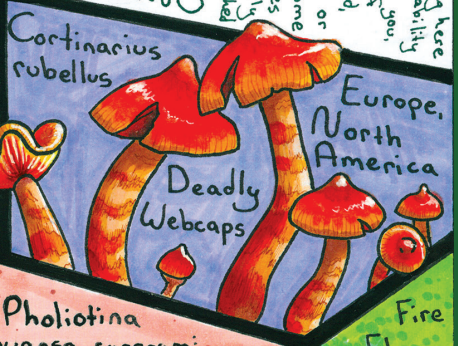 Cortinarius
rubellus
Europe,
North
America
Deadly
Webcaps
Pholiotina
Fire
here
ability
you,
or